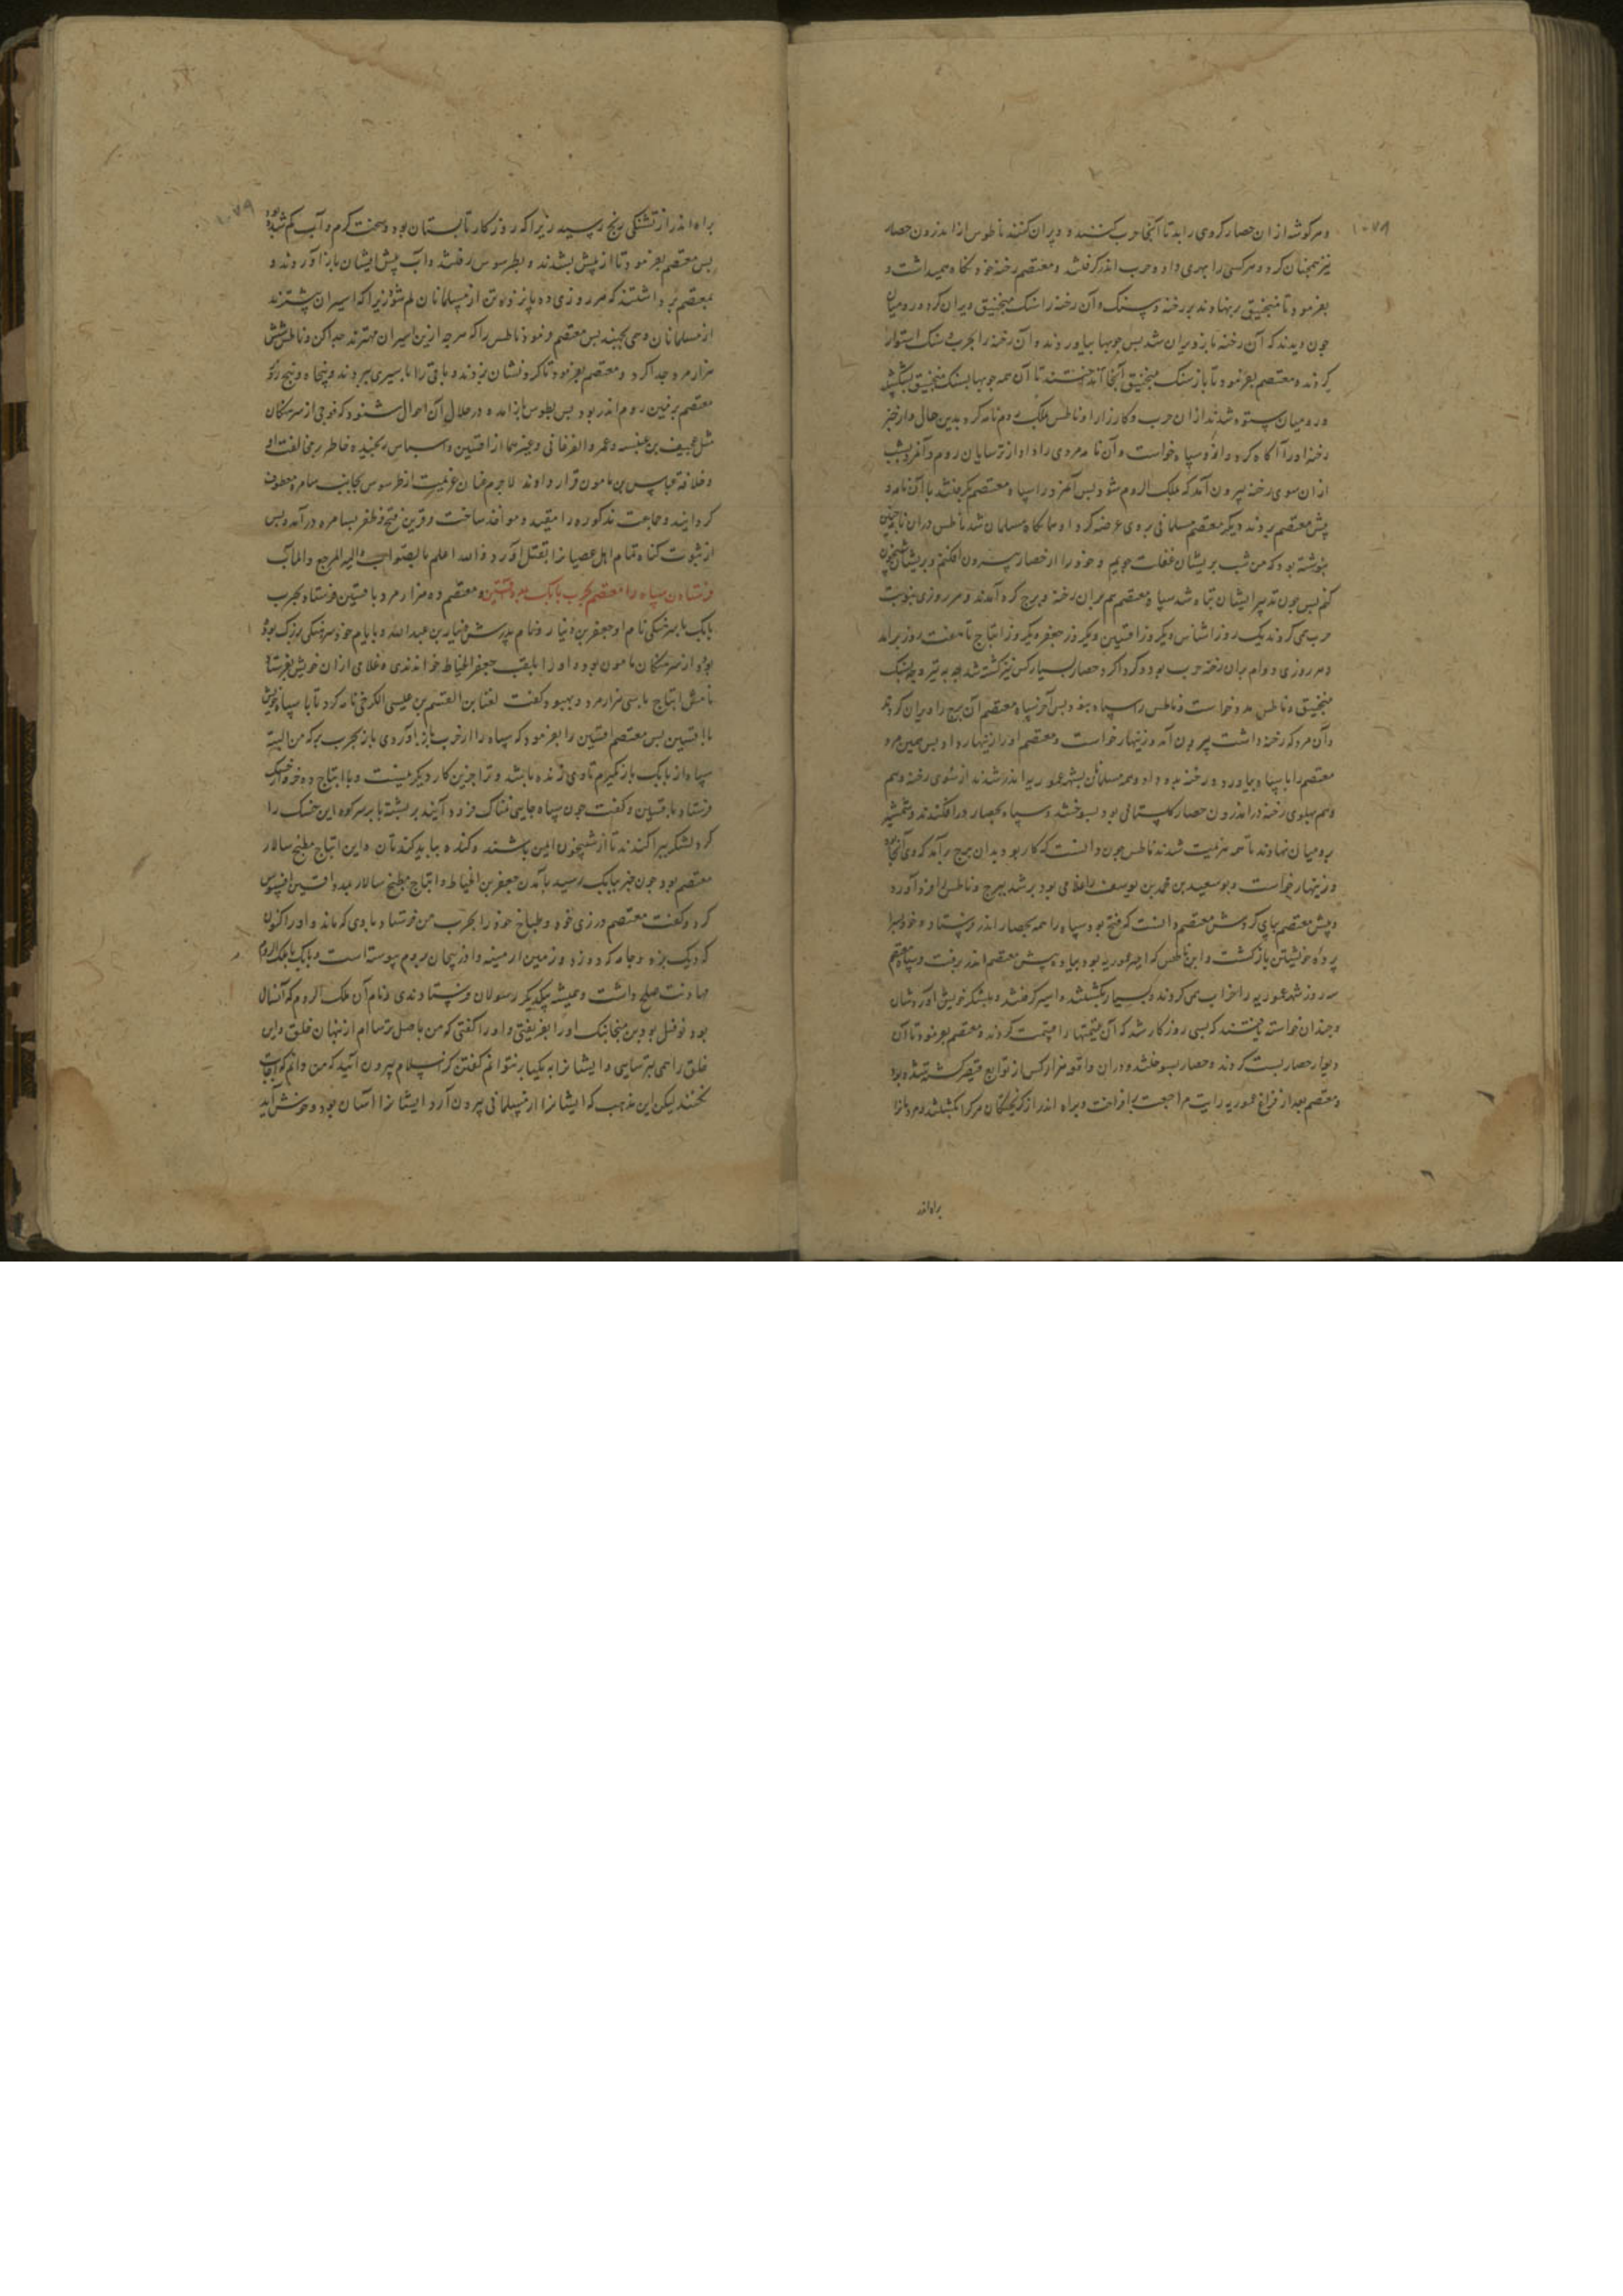 ۱۰۷۸
و هر گوشه از ان حصار کروی را بد تا آنجا حرب کنند و ویران کنند ناطوس از اندرون حصار
نیز همچنان کرد و هر کسی را بهری داد و حرب اندر گرفتند و معتصم رخنه خود نگاه میداشت و
بفرمود تا منجنیق بنهادند بر رخنه و سنک و آن رخنه را سنک منجنیق ویران کرد و رومیان
جون دیدند که آن رخنه باز ویران شد بس جوبها بیاوردند و آن رخنه را بجوب و سنک استوار
کردند و معتصم بفرمود تا باز سنک منجنیق آنجا انداختند تا آن همه جوبها بسنک منجنیق بشکست
و رومیان ستوه شدند از ان حرب و کارزار و ناطس ملک روم نامه کرد بدین حال و از خبر
رخنه او را آگاه کرد و ازو سپاه خواست و آن نامه مردی را داد از ترسایان روم و آنمرد بشب
از ان سوی رخنه بیرون آمد که بملک الروم شود بس آنمرد را سپاه معتصم بگرفتند با آن نامه و
پیش معتصم بردند دیگر معتصم مسلمانی بر وی عرضه کرد او همانگاه مسلمان شد ناطس در ان نامه چنین
نوشته بود که من شب بریشان غفلت جویم و خود را از حصار بیرون افکنم و بریشان شبیخون
کنم بس جون تدبیر ایشان تباه شد سپاه معتصم هم بران رخنه و برج کرد آمدند و هر روزی بنوبت
حرب می کردند یک روز اشناس دیگر روز افشین و دیگر روز جعفر و دیگر روز ایتاخ تا هفت روز برامد
و هر روزی دوام بران رخنه حرب بود و گرداگرد حصار بسیار کس نیز کشته شد چه به تیر و چه بسنک
منجنیق و ناطس مدد خواست و ناطس را سپاه نبود بس آخر سپاه معتصم آن برج را ویران کردند
و آن مرد که رخنه داشت بیرون آمد و زینهار خواست و معتصم او را زینهار داد بس همین مرد
معتصم را با سپاه بیاورد و رخنه بدو داد و همه مسلمانان بشهر عموریه اندر شدند از سوی رخنه و هم
و هم پهلوی رخنه در اندرون حصار کلیسائی بود بسوختند و سپاه بحصار در افکندند و شمشیر
برومیان نهادند تا همه هزیمت شدند ناطس جون دانست که کار بود بدان برج برآمد که وی آنجا بود
و زینهار خواست و بوسعید بن محمد بن یوسف را غلامی بود بر شد ببرج و ناطس را فرود آورد
و پیش معتصم بپای کردش معتصم دانست که فتح بود سپاه را همه بحصار اندر فرستاد و خود بسرا
پرده خویشتن باز گشت و این ناطس که امیر عموریه بود بیاوه پیش معتصم اندر رفت و سپاه معتصم
سه روز شهر عموریه را خراب می کردند و بسیار بکشتند و اسیر گرفتند و بلشکر خویش آوردشان
و جندان خواسته یافتند که بسی روزگار شد که آن غنیمتها را قسمت کردند و معتصم بفرمود تا آن
دیوار حصار بست کردند و حصار بسوختند و دران واقعه هزار کس از توابع قیصر کشته شده بود
و معتصم بعد از فراغ عموریه رایت مراجعت برافراخت و براه اندر از گریختگان هر که را بکشتند و مردمان را
براه اندر
۱۰۷۹
براه اندر از تشنگی رنج رسید زیرا که روزگار تابستان بود و سخت گرم و آب کم شده بود
بس معتصم بفرمود تا از پیش بشدند و بطرسوس رفتند و آب پیش ایشان باز آوردند و
بمعتصم برداشتند که هر روزی ده پانزده تن از مسلمانان کم شود زیرا که اسیران بیشترند
از مسلمانان و می بجهند بس معتصم فرمود ناطس را که هر چه ازین اسیران مهترند جدا کن و ناطس شش
هزار مرد جدا کرد و معتصم بفرمود تا گردنشان بزدند و باقی را با سیری ببردند و پنجاه و پنج روز
معتصم بزمین روم اندر بود بس بطوس باز آمد و در خلال آن احوال شنود که فوجی از سرهنگان
مثل عجیف بن عنبسه و عمرو الفرغانی و غیرهما از افشین و اشناس رنجیده خاطر بر مخالفت او
و خلافة عباس بن مامون قرار دادند لاجرم عنان عزیمت از طرسوس بجانب سامره معطوف
گردانید و جماعت مذکوره را مقید و مواخذ ساخت و قرین فتح و ظفر بسامره درآمد و بس
از ثبوت گناه تمام اهل عصیان را بقتل آورد و الله اعلم بالصواب والیه المرجع والماب
فرستادن سپاه را معتصم بحرب بابک بمدد افشین و معتصم ده هزار مرد با افشین فرستاد بحرب
بابک با سرهنگی نام او جعفر بن دینار و نام پدرش دینار بن عبدالله و بایام خود سرهنگی بزرک بود
بود از سرهنگان مامون بود و او را بلقب جعفر الخیاط خواندندی و غلامی از ان خویش بفرستاد
نامش ایتاخ با سی هزار مرد و بهبود گفت لقنا بن القسم بن عیسی الکرخی نامه کرد تا با سپاه خویش
با افشین بس معتصم افشین را بفرمود که سپاه را از حرب باز آوردی باز بحرب برکه من البته
سپاه از بابک باز نگیرم تا وی زنده باشد و ترا جز این کار دیگر نیست و با ایتاخ ده خروار خسک
فرستاد بافشین و گفت جون سپاه جایی نمناک فرود آیند بر پشته یا بر سر کوه این خسک را
گرد لشکر بپراکندند تا از شبیخون ایمن باشند و کنده بباید کندتان و این ایتاخ مطبخ سالار
معتصم بود جون خبر ببابک رسید بآمدن جعفر بن الخیاط و ایتاخ مطبخ سالار بمدد افشین افسوس
کرد و گفت معتصم درزی خود و طباخ خود را بحرب من فرستاد با وی که ماند و او را اکنون
که دیک بزد و جامه که دوزد و زمین ارمینه و اذربیجان بروم پیوسته است و بابک با ملک الروم
مهادنت صلح داشت و همیشه بیکدیگر رسولان فرستادندی و نام آن ملک الروم که آنسال
بود نوفل بود بن میخائیک او را بفریفتی و او را گفتی که من باصل ترسا ام از نهان خلق و این
خلق را همی بترسایی و ایشان را به یکبار نتوانم گفتن کز اسلام بیرون آئید که من دانم که اجابت
نکنند لیکن این مذهب که ایشان را از مسلمانی بیرون آرد ایشان را آسان بود و خوش آید